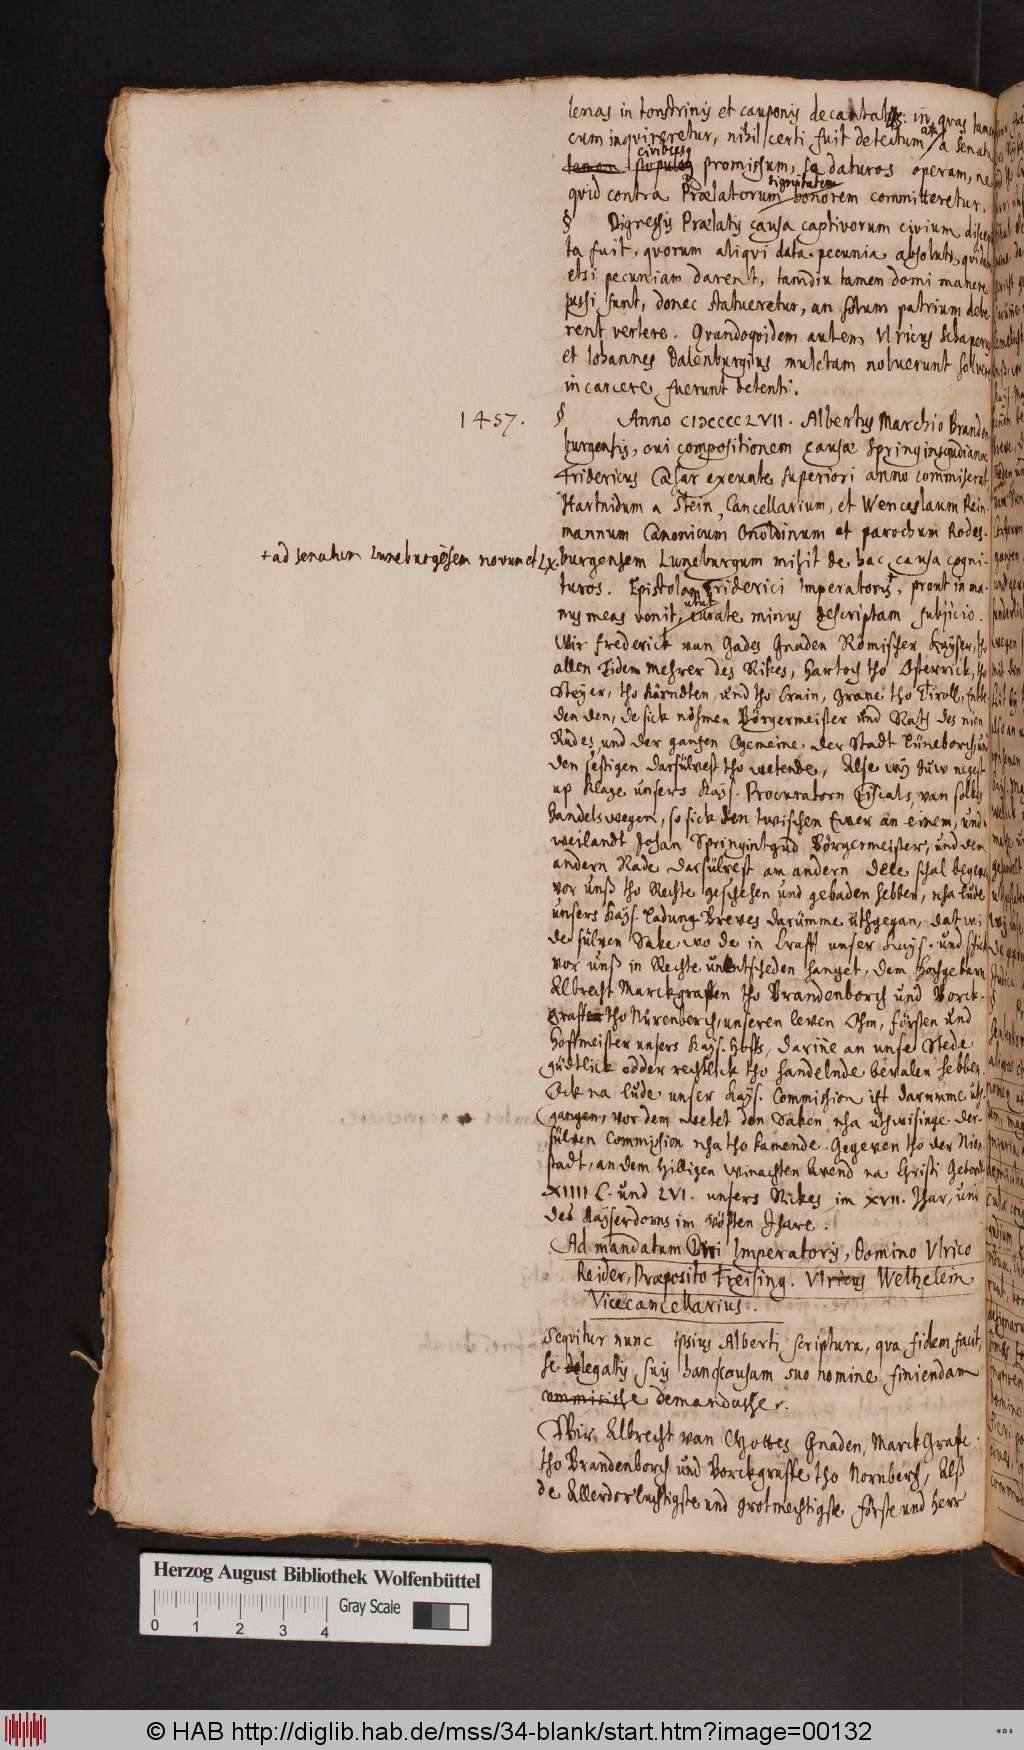 lenas in tonstrinis et cauponis decantatas: in quas tamen
cum inquireretur, nihil certi fuit detectum, a Senatu
civibusq
tamen populoq promissum, se daturos operam, ne
dignitatem
quid contra Prælatorum honorem committeretur.
§ Digressis Prælatis causa captivorum civium discep
ta fuit, quorum aliqui data pecunia absoluti, quidam
etsi pecuniam darent, tamdiu tamen domi manere
jussi sunt, donec statueretur, an solum patrium debe
rent vertere. Quandoquidem autem Ulricus Schaperus
et Iohannes Dalenburgius mulctam noluerunt solvere
in carcere fuerunt detenti.
1457. § Anno CIƆCCCCLVII. Albertus Marchio Branden
burgensis, cui compositionem causæ Springinsgudianæ
Fridericus Cæsar exeunte superiori anno commiserat
Hartnidum a Stein, Cancellarium, et Wenceslaum Rein
mannum Canonicum Onoldinum et parochum Rades-
+ ad senatum Luneburgēsem novum et LX.
burgensem Luneburgum misit de hac causa cogni-
turos. Epistolam Friderici Imperatoris, prout in ma-
utut
nus meas venit, curate minus descriptam subjicio.
Wir Frederick van Gades Gnaden Römischer Kayser, tho
allen Tiden mehrer des Rikes, Hartoch tho Osterrick, tho
Steyer, tho Kärndten, und tho Crain, Grave tho Tiroll, Entbe
den den, de sick nöhmen Börgermeister und Rath des nien
Rades, und der gantzen Gemeine der Stadt Lüneborch, und
den sestigen darsülvest tho wetende, Alse wy Juw negest
up Klage unsers Kays. Procuratorn Fiscals, van solkes
handels wegen, so sick den twischen Juwer an einem, und
weilandt Johan Springintgud Börgermeister, und den
andern Rade darsülvest am andern dele schal begeven
vor unß tho Rechte geschehen und gebaden hebben, nha lude
unsers Kays. Ladung Breves darümme uthgegan, dat wi
de sülven Sake, wo de in Crafft unser Kays. und schick
vor unß in Rechte unentscheden hanget, dem Hochgebarn
Albrecht Marckgraffen tho Brandenborch und Borck-
graffen tho Nürenberch, unseren leven Ohm, Försten und
Hoffmeister unsers Kays. Hoffs, darinne an unse Stede
gütlick odder rechtlick tho handelnde bevalen hebben.
Ock na lude unser Kays. Commission ist darumme uth
gangen, vor dem wetet den Saken nha uthwisinge der-
sülven Commission nha tho kamende. Gegeven tho der Nien
stadt, an dem hilligen Winachten Avend na Christi Gebort
XIIII C. und LVI. unsers Rickes im XVII. Jhar, und
des Kayserdoms im vöfften Jhare.
Ad mandatum Dni Imperatoris, Domino Ulrico
Reider, Præposito Freising. Ulricus Welhelein
Vicecancellarius.
Sequitur nunc ipsius Alberti scriptura, qua fidem facit,
se delegatis suis hanc causam suo nomine finiendam
commisisse demandasse.
Wir Albrecht van Gottes Gnaden, MarckGraffe
tho Brandenborch und Borckgraffe tho Nornberch, Alß
de Allerdorluchtigste und grotmechtigste Förste und Herr
Herzog August Bibliothek Wolfenbüttel
Gray Scale
0 1 2 3 4
© HAB http://diglib.hab.de/mss/34-blank/start.htm?image=00132